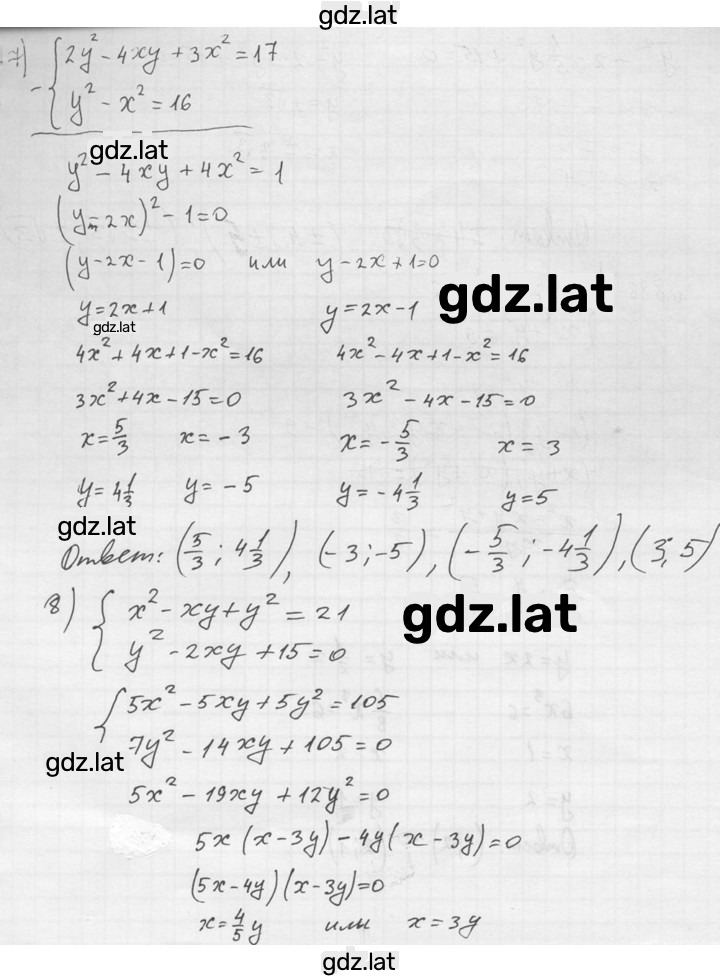 gdz.lat
7) { 2y² - 4xy + 3x² = 17
- { y² - x² = 16
gdz.lat
y² - 4xy + 4x² = 1
(y - 2x)² - 1 = 0
(y - 2x - 1) = 0 или y - 2x + 1 = 0
y = 2x + 1 y = 2x - 1
gdz.lat
gdz.lat
4x² + 4x + 1 - x² = 16 4x² - 4x + 1 - x² = 16
3x² + 4x - 15 = 0 3x² - 4x - 15 = 0
x = 5/3 x = - 3 x = - 5/3 x = 3
y = 4 1/3 y = - 5 y = - 4 1/3 y = 5
gdz.lat
Ответ: (5/3 ; 4 1/3), (- 3 ; -5), (- 5/3 ; -4 1/3), (3; 5)
8) { x² - xy + y² = 21
{ y² - 2xy + 15 = 0
gdz.lat
{ 5x² - 5xy + 5y² = 105
7y² - 14xy + 105 = 0
gdz.lat
5x² - 19xy + 12y² = 0
5x (x - 3y) - 4y (x - 3y) = 0
(5x - 4y)(x - 3y) = 0
x = 4/5 y или x = 3y
gdz.lat